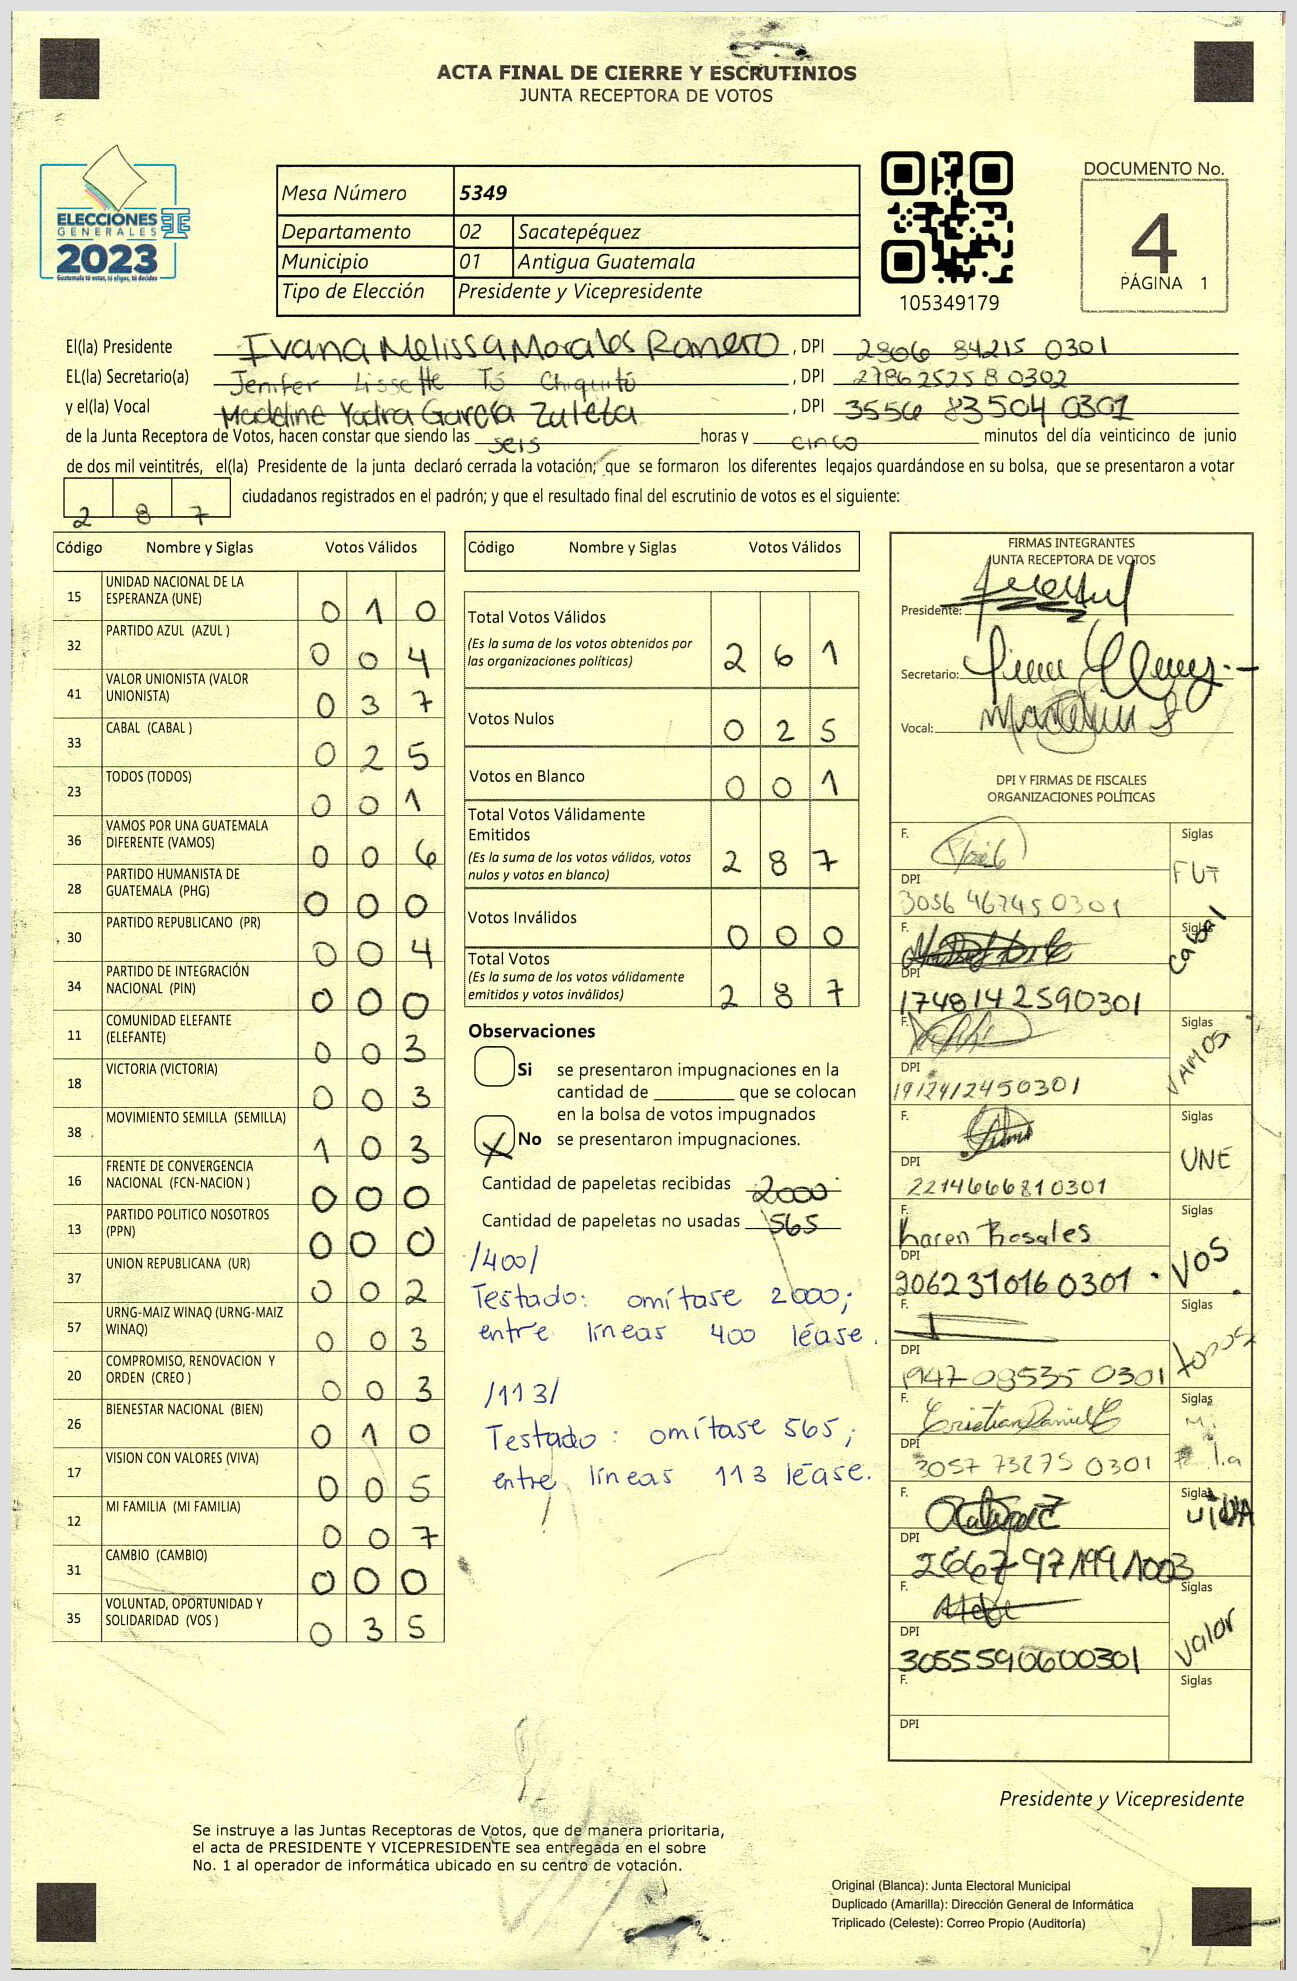 ACTA FINAL DE CIERRE Y ESCRUTINIOS
JUNTA RECEPTORA DE VOTOS
ELECCIONES
GENERALES
2023
Guatemala tú votas, tú eliges, tú decides
Mesa Número 5349
Departamento 02 Sacatepéquez
Municipio 01 Antigua Guatemala
Tipo de Elección Presidente y Vicepresidente
105349179
DOCUMENTO No.
4
PÁGINA 1
El(la) Presidente Ivana Melissa Morales Romero, DPI 2906 84215 0301
EL(la) Secretario(a) Jenifer Lissette Tó Chiquitó, DPI 2786 25258 0302
y el(la) Vocal Madeline Yadira García Zuleta, DPI 3556 83504 0301
de la Junta Receptora de Votos, hacen constar que siendo las seis horas y cinco minutos del día veinticinco de junio
de dos mil veintitrés, el(la) Presidente de la junta declaró cerrada la votación; que se formaron los diferentes legajos guardándose en su bolsa, que se presentaron a votar
287 ciudadanos registrados en el padrón; y que el resultado final del escrutinio de votos es el siguiente:
Código Nombre y Siglas Votos Válidos
15 UNIDAD NACIONAL DE LA ESPERANZA (UNE) 0 1 0
32 PARTIDO AZUL (AZUL ) 0 0 4
41 VALOR UNIONISTA (VALOR UNIONISTA) 0 3 7
33 CABAL (CABAL ) 0 2 5
23 TODOS (TODOS) 0 0 1
36 VAMOS POR UNA GUATEMALA DIFERENTE (VAMOS) 0 0 6
28 PARTIDO HUMANISTA DE GUATEMALA (PHG) 0 0 0
30 PARTIDO REPUBLICANO (PR) 0 0 4
34 PARTIDO DE INTEGRACIÓN NACIONAL (PIN) 0 0 0
11 COMUNIDAD ELEFANTE (ELEFANTE) 0 0 3
18 VICTORIA (VICTORIA) 0 0 3
38 MOVIMIENTO SEMILLA (SEMILLA) 1 0 3
16 FRENTE DE CONVERGENCIA NACIONAL (FCN-NACION ) 0 0 0
13 PARTIDO POLITICO NOSOTROS (PPN) 0 0 0
37 UNION REPUBLICANA (UR) 0 0 2
57 URNG-MAIZ WINAQ (URNG-MAIZ WINAQ) 0 0 3
20 COMPROMISO, RENOVACION Y ORDEN (CREO ) 0 0 3
26 BIENESTAR NACIONAL (BIEN) 0 1 0
17 VISION CON VALORES (VIVA) 0 0 5
12 MI FAMILIA (MI FAMILIA) 0 0 7
31 CAMBIO (CAMBIO) 0 0 0
35 VOLUNTAD, OPORTUNIDAD Y SOLIDARIDAD (VOS ) 0 3 5
Código Nombre y Siglas Votos Válidos
Total Votos Válidos 2 6 1
(Es la suma de los votos obtenidos por
las organizaciones políticas)
Votos Nulos 0 2 5
Votos en Blanco 0 0 1
Total Votos Válidamente
Emitidos 2 8 7
(Es la suma de los votos válidos, votos
nulos y votos en blanco)
Votos Inválidos 0 0 0
Total Votos 2 8 7
(Es la suma de los votos válidamente
emitidos y votos inválidos)
Observaciones
Si se presentaron impugnaciones en la
cantidad de ________ que se colocan
en la bolsa de votos impugnados
X No se presentaron impugnaciones.
Cantidad de papeletas recibidas 2000
Cantidad de papeletas no usadas 565
/400/
Testado: omítase 2000;
entre líneas 400 léase.
/113/
Testado: omítase 565;
entre líneas 113 léase.
FIRMAS INTEGRANTES
JUNTA RECEPTORA DE VOTOS
Presidente:
Secretario:
Vocal:
DPI Y FIRMAS DE FISCALES
ORGANIZACIONES POLÍTICAS
F. Siglas FUT
DPI 3056 46745 0301
F. Siglas Cabal
DPI 1748142590301
F. Siglas VAMOS
DPI 1912412450301
F. Siglas UNE
DPI 2214666810301
F. Karen Rosales Siglas VOS.
DPI 2062310160301
F. Siglas todos
DPI 1947 08535 0301
F. Cristian Daniel Siglas
DPI 3057 73275 0301
F. Siglas VIVA
DPI 2667971991003
F. Siglas Valor
DPI 3055590600301
F. Siglas
DPI
Presidente y Vicepresidente
Se instruye a las Juntas Receptoras de Votos, que de manera prioritaria,
el acta de PRESIDENTE Y VICEPRESIDENTE sea entregada en el sobre
No. 1 al operador de informática ubicado en su centro de votación.
Original (Blanca): Junta Electoral Municipal
Duplicado (Amarilla): Dirección General de Informática
Triplicado (Celeste): Correo Propio (Auditoría)